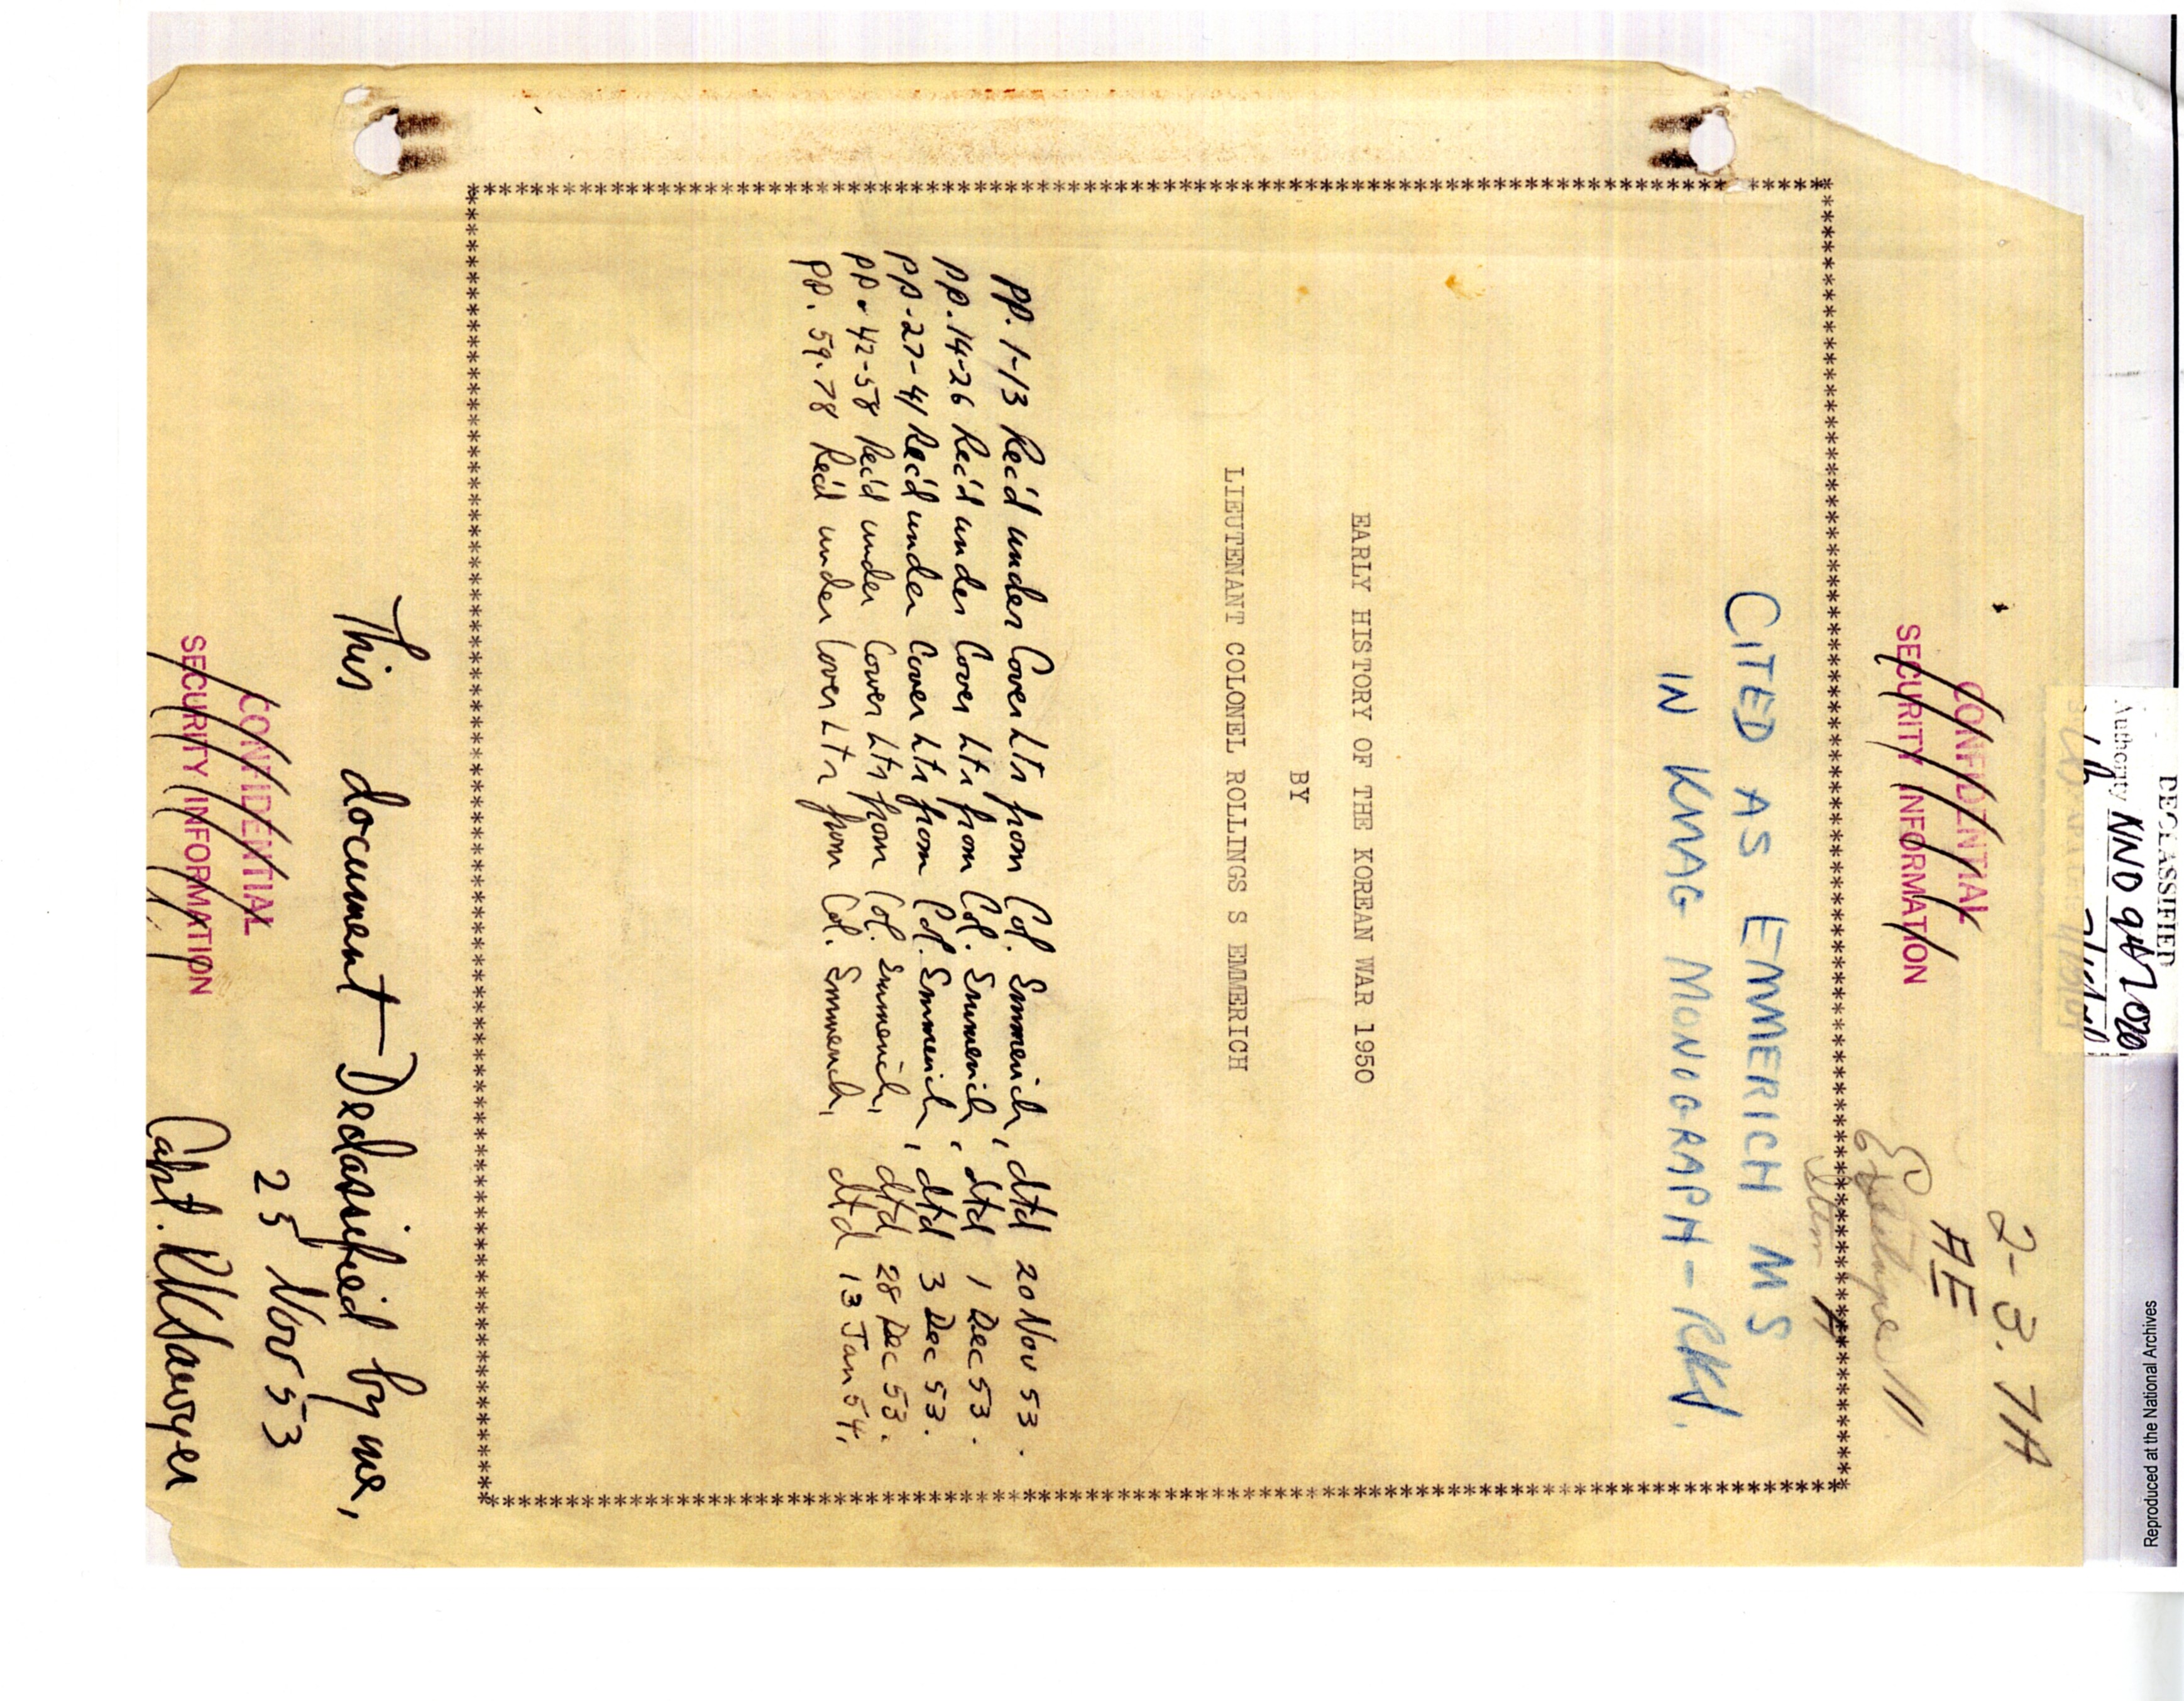 DECLASSIFIED
Authority NND
Reproduced at the National Archives
2-3.7A
AE
CONFIDENTIAL
SECURITY INFORMATION
Envelope 11
Item A
CITED AS EMMERICH MS
IN KMAG MONOGRAPH - RKS.
EARLY HISTORY OF THE KOREAN WAR 1950
BY
LIEUTENANT COLONEL ROLLINGS S EMMERICH
PP. 1-13 Rec'd under Cover Ltr from Col. Emmerich, dtd 20 Nov 53.
PP. 14-26 Rec'd under Cover Ltr from Col. Emmerich, dtd 1 Dec 53.
PP. 27-41 Rec'd under Cover Ltr from Col. Emmerich, dtd 3 Dec 53.
PP. 42-58 Rec'd under Cover Ltr from Col. Emmerich, dtd 28 Dec 53.
PP. 59-78 Rec'd under Cover Ltr from Col. Emmerich, dtd 13 Jan 54.
This document Declassified by me,
25 Nov 53
Capt. RK Sawyer
CONFIDENTIAL
SECURITY INFORMATION